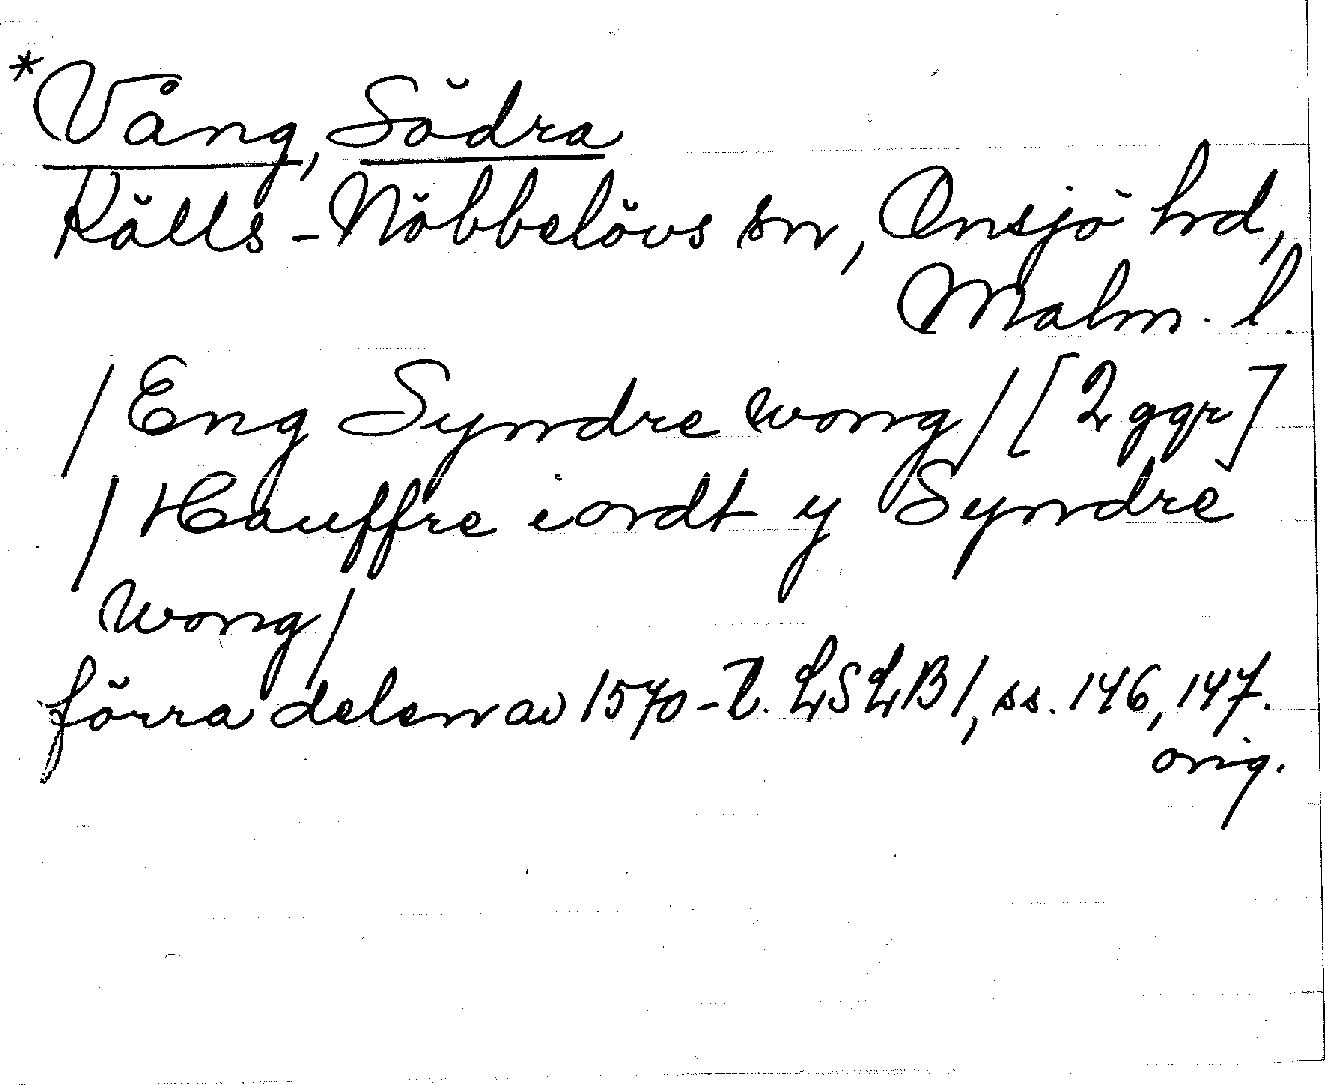 *Vång, Södra
Källs-Nöbbelövs sn, Onsjö hrd,
Malm. l.
/Eng Syndre wong/ [2 ggr]
/Hauffre iordt y Syndre
wong/
förra delen av 1570-t. LSLB 1, ss. 146, 147.
orig.